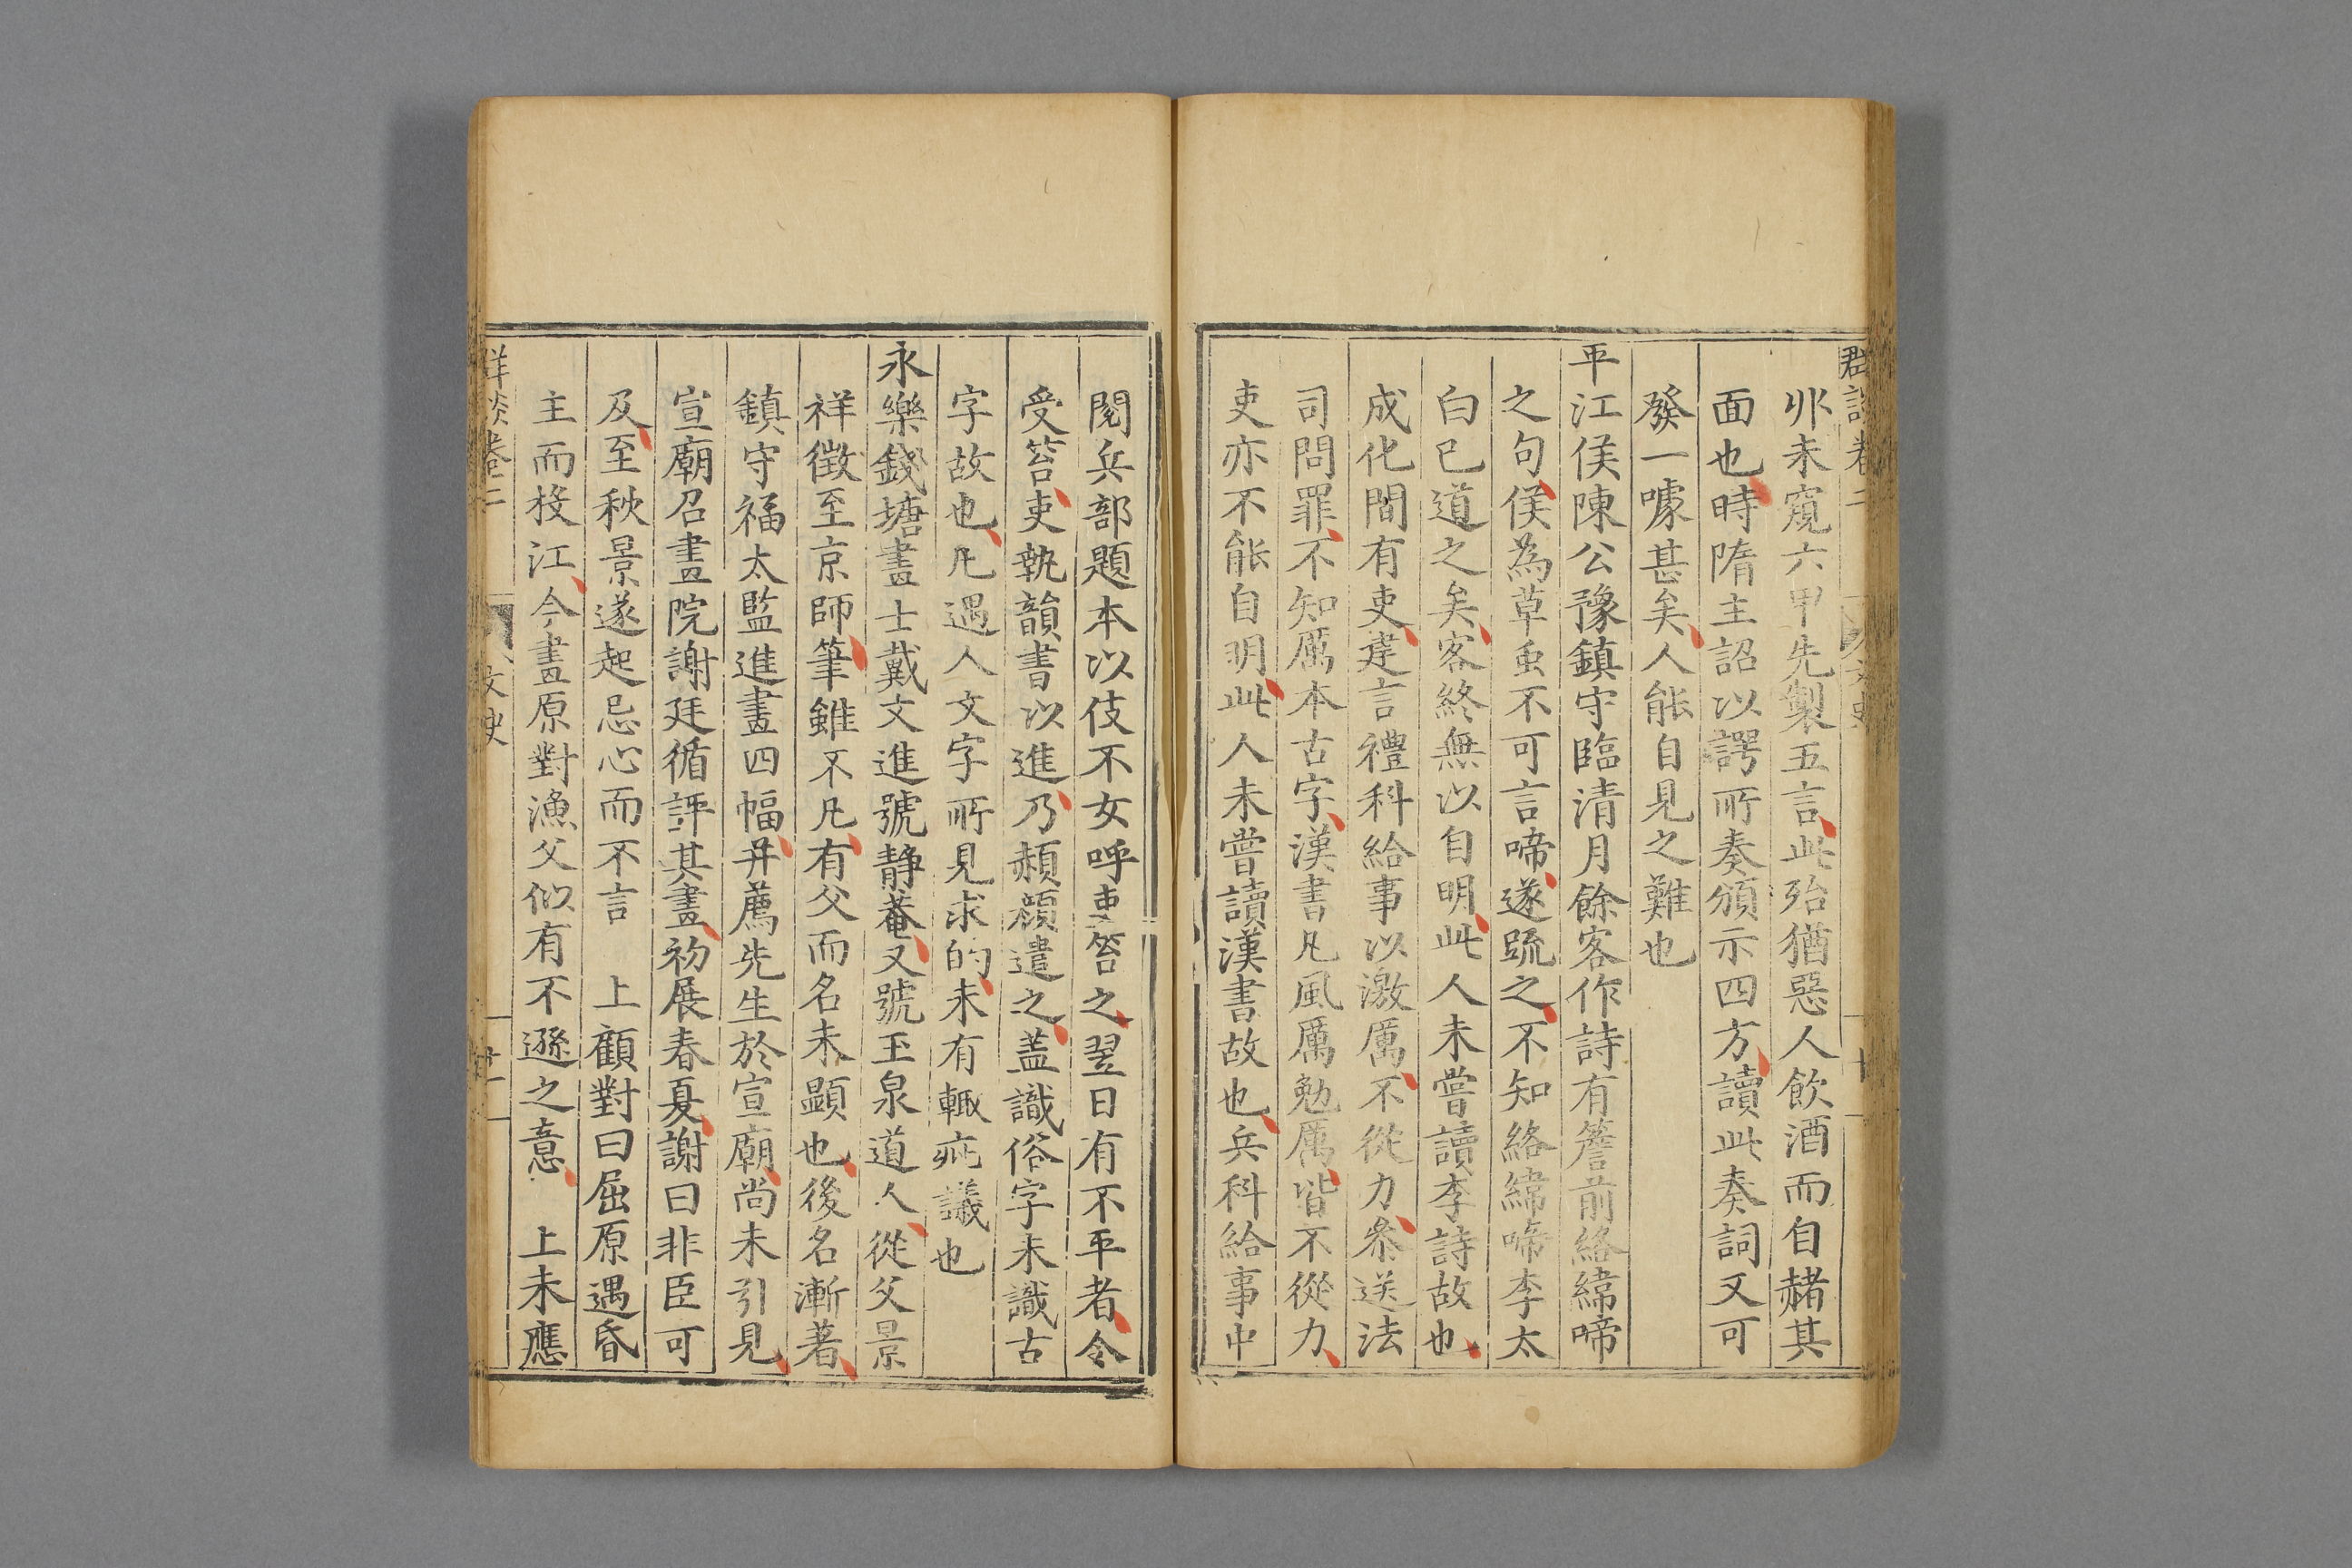 丱未窺六甲先製五言此殆猶惡人飲酒而自赭其
面也時隋主詔以諤所奏頒示四方讀此奏詞又可
發一噱甚矣人能自見之難也
平江侯陳公豫鎮守臨清月餘客作詩有簷前絡緯啼
之句侯為草虫不可言啼遂䟽之不知絡緯啼李太
白已道之矣客終無以自明此人未嘗讀李詩故也
成化間有吏建言禮科給事以激厲不從力叅送法
司問罪不知厲本古字漢書凡風厲勉厲皆不從力
吏亦不能自明此人未嘗讀漢書故也兵科給事中
閱兵部題本以伎不女呼吏笞之翌日有不平者令
受笞吏執韻書以進乃赬顏遣之盖識俗字未識古
字故也凡遇人文字所見求的未有輙疵議也
永樂錢塘畫士戴文進號静菴又號玉泉道人從父景
祥徵至京師筆雖不凡有父而名未顯也後名漸著
鎮守福太監進畫四幅并薦先生於宣廟尚未引見
宣廟召畫院謝廷循評其畫初展春夏謝曰非臣可
及至秋景遂起忌心而不言 上顧對曰屈原遇昏
主而投江今畫原對漁父似有不遜之意 上未應
卷二 文史 廿一